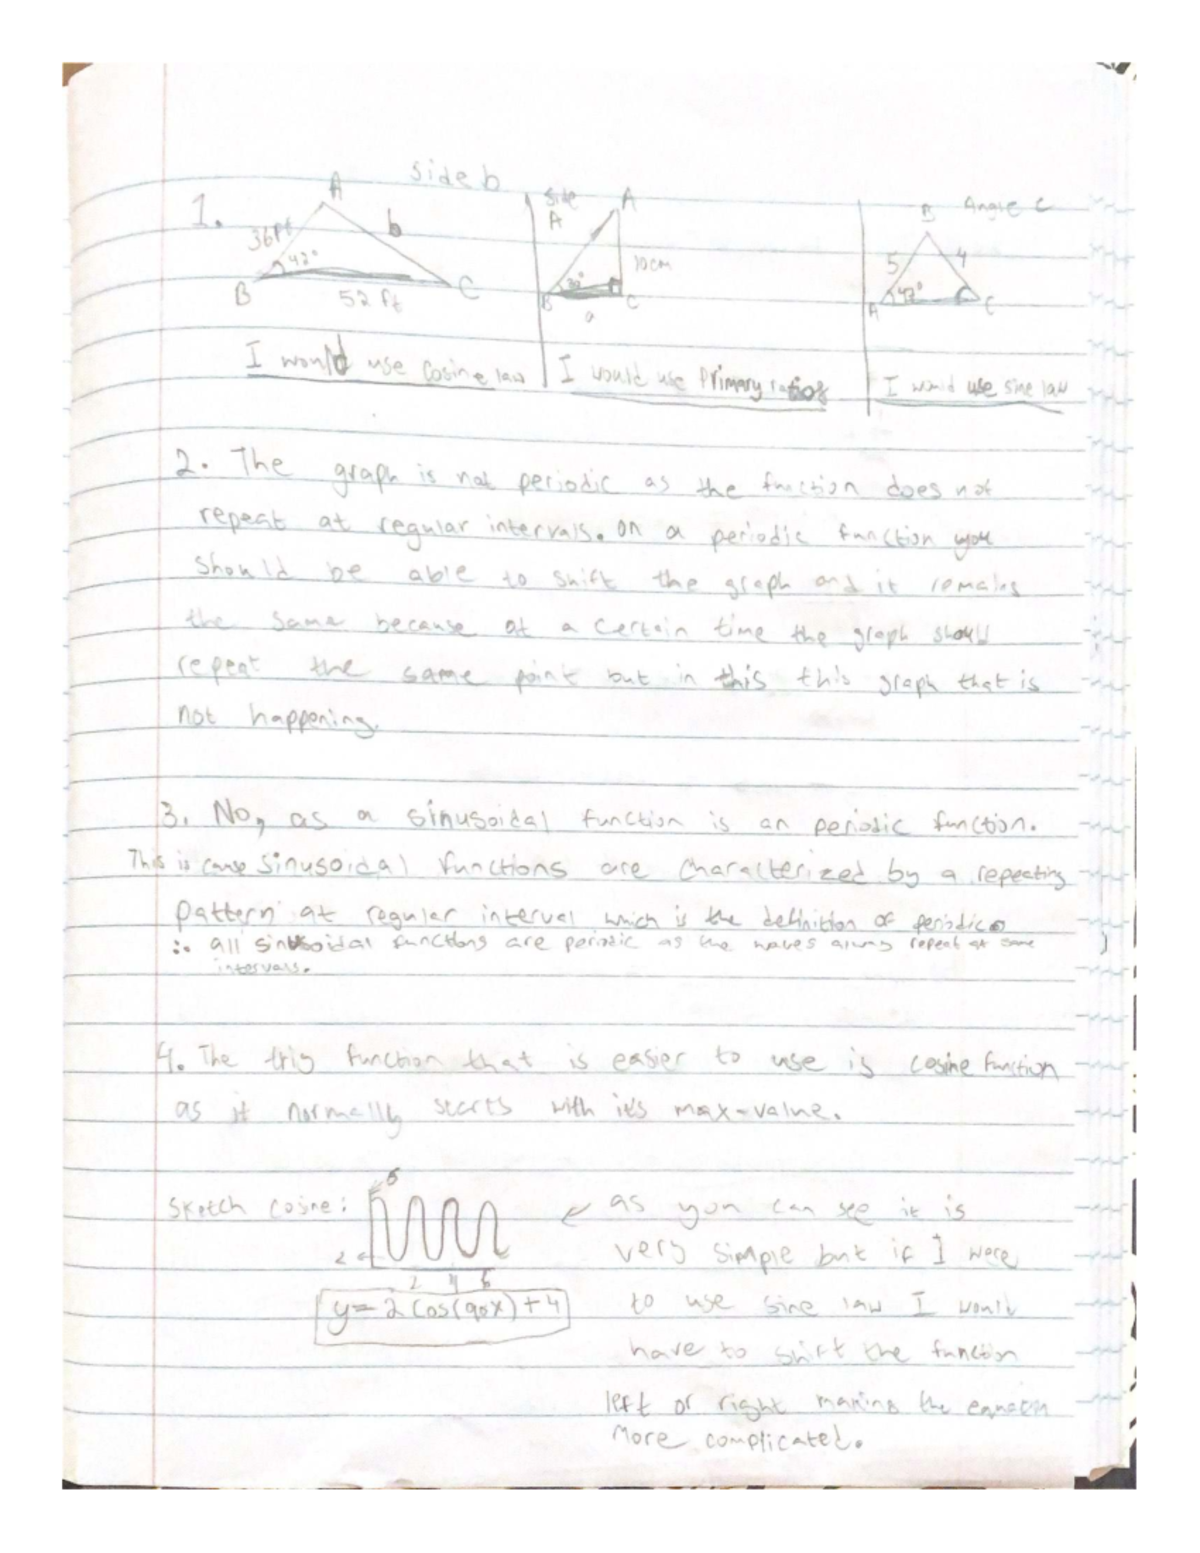 side b
1.
A
36ft
b
42°
B
52 ft
C
I would use Cosine law
side
A
A
10cm
30°
B
C
a
I would use Primary ratios
Angle C
B
5
4
42°
A
C
I would use sine law
2. The graph is not periodic as the function does not
repeat at regular intervals. on a periodic function you
should be able to shift the graph and it remains
the same because at a certain time the graph should
repeat the same point but in this this graph that is
not happening.
3. No, as a sinusoidal function is an periodic function.
This is cause sinusoidal functions are characterized by a repeating
pattern at regular interval which is the definition of periodic.
∴ all sinusoidal functions are periodic as the waves always repeat at same
intervals.
4. The trig function that is easier to use is cosine function
as it normally starts with it's max-value.
Sketch cosine:
6
2
2 4 6
y = 2 cos(90x) + 4
as you can see it is
very simple but if I were
to use sine law I would
have to shift the function
left or right making the equation
more complicated.